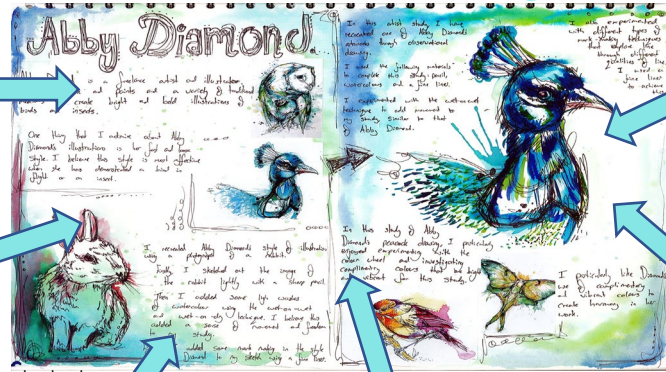 Abby Diamond.
is a freelance artist and illustrator
and paints and a variety of traditional
create bright and bold illustrations of
birds and insects.
One thing that I admire about Abby
Diamonds illustrations is her fast and loose
style. I believe this style is most effective
when she has demonstrated a bird in
flight or an insect.
I recreated Abby Diamonds style of illustration
using a photograph of a rabbit.
Firstly I sketched out the image of
the rabbit lightly with a sharp pencil.
Then I added some light washes
of watercolour using the wet-on-wet
and wet-on-dry technique. I believe this
added a sense of movement and freedom
to my study.
added some mark making in the style
Diamond to my sketch using a fine liner.
In this artist study I have
recreated one of Abby Diamonds
through observational
drawing.
I used the following materials to
complete this study: pencil,
watercolours and a fine liner.
I experimented with the wet-on-wet
technique to add movement to
my study similar to that
of Abby Diamond.
In this study of Abby
Diamonds peacock drawing, I particularly
enjoyed experimenting with the
colour wheel and investigating
complimentary colours that are bright
and vibrant for this study.
I also experimented
with different types of
mark-making techniques
that explore line
through different
qualities of line.
I used a
fine liner
to achieve
I particularly like Diamonds
use of complimentary
and vibrant colours to
create harmony in her
work.